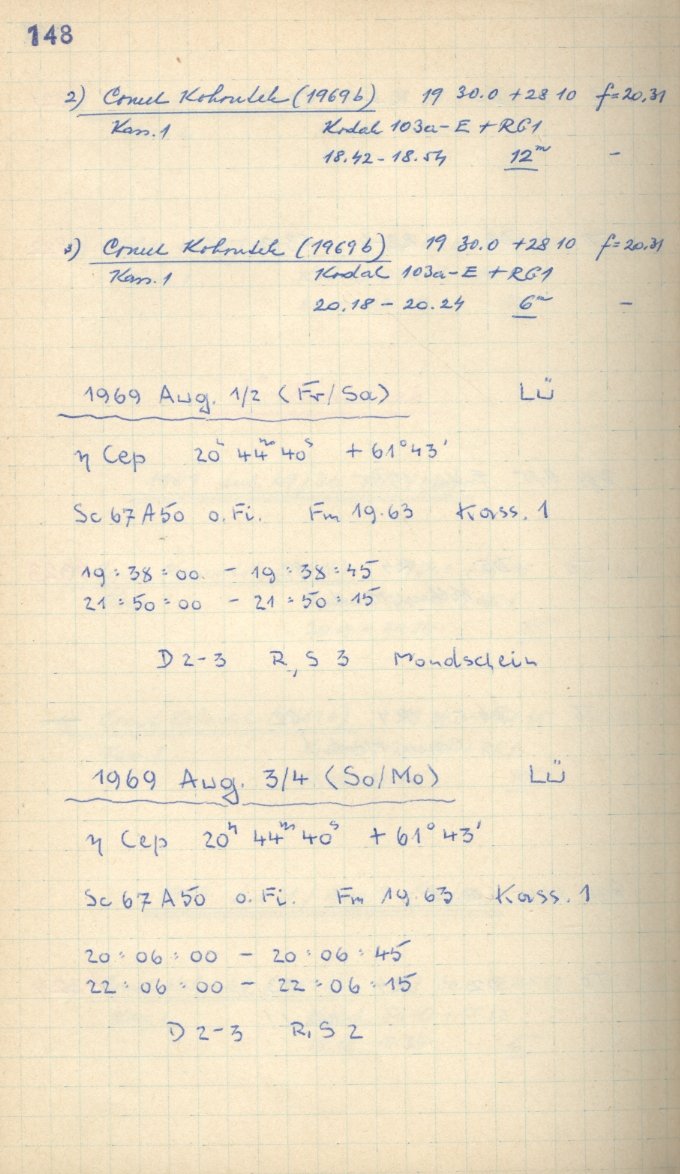 148
2) Comet Kohoutek (1969b) 19 30.0 +28 10 f=20,31
Kass. 1 Kodak 103a-E + RG1
18.42 - 18.54 12m -
3) Comet Kohoutek (1969b) 19 30.0 +28 10 f=20,31
Kass. 1 Kodak 103a-E + RG1
20.18 - 20.24 6m -
1969 Aug. 1/2 (Fr/Sa) LÜ
η Cep 20h 44m 40s + 61° 43'
Sc 67 A 50 o. Fi. Fm 19.63 Kass. 1
19:38:00 - 19:38:45
21:50:00 - 21:50:15
D 2-3 R, S 3 Mondschein
1969 Aug. 3/4 (So/Mo) LÜ
η Cep 20h 44m 40s + 61° 43'
Sc 67 A 50 o. Fi. Fm 19.63 Kass. 1
20:06:00 - 20:06:45
22:06:00 - 22:06:15
D 2-3 R, S 2